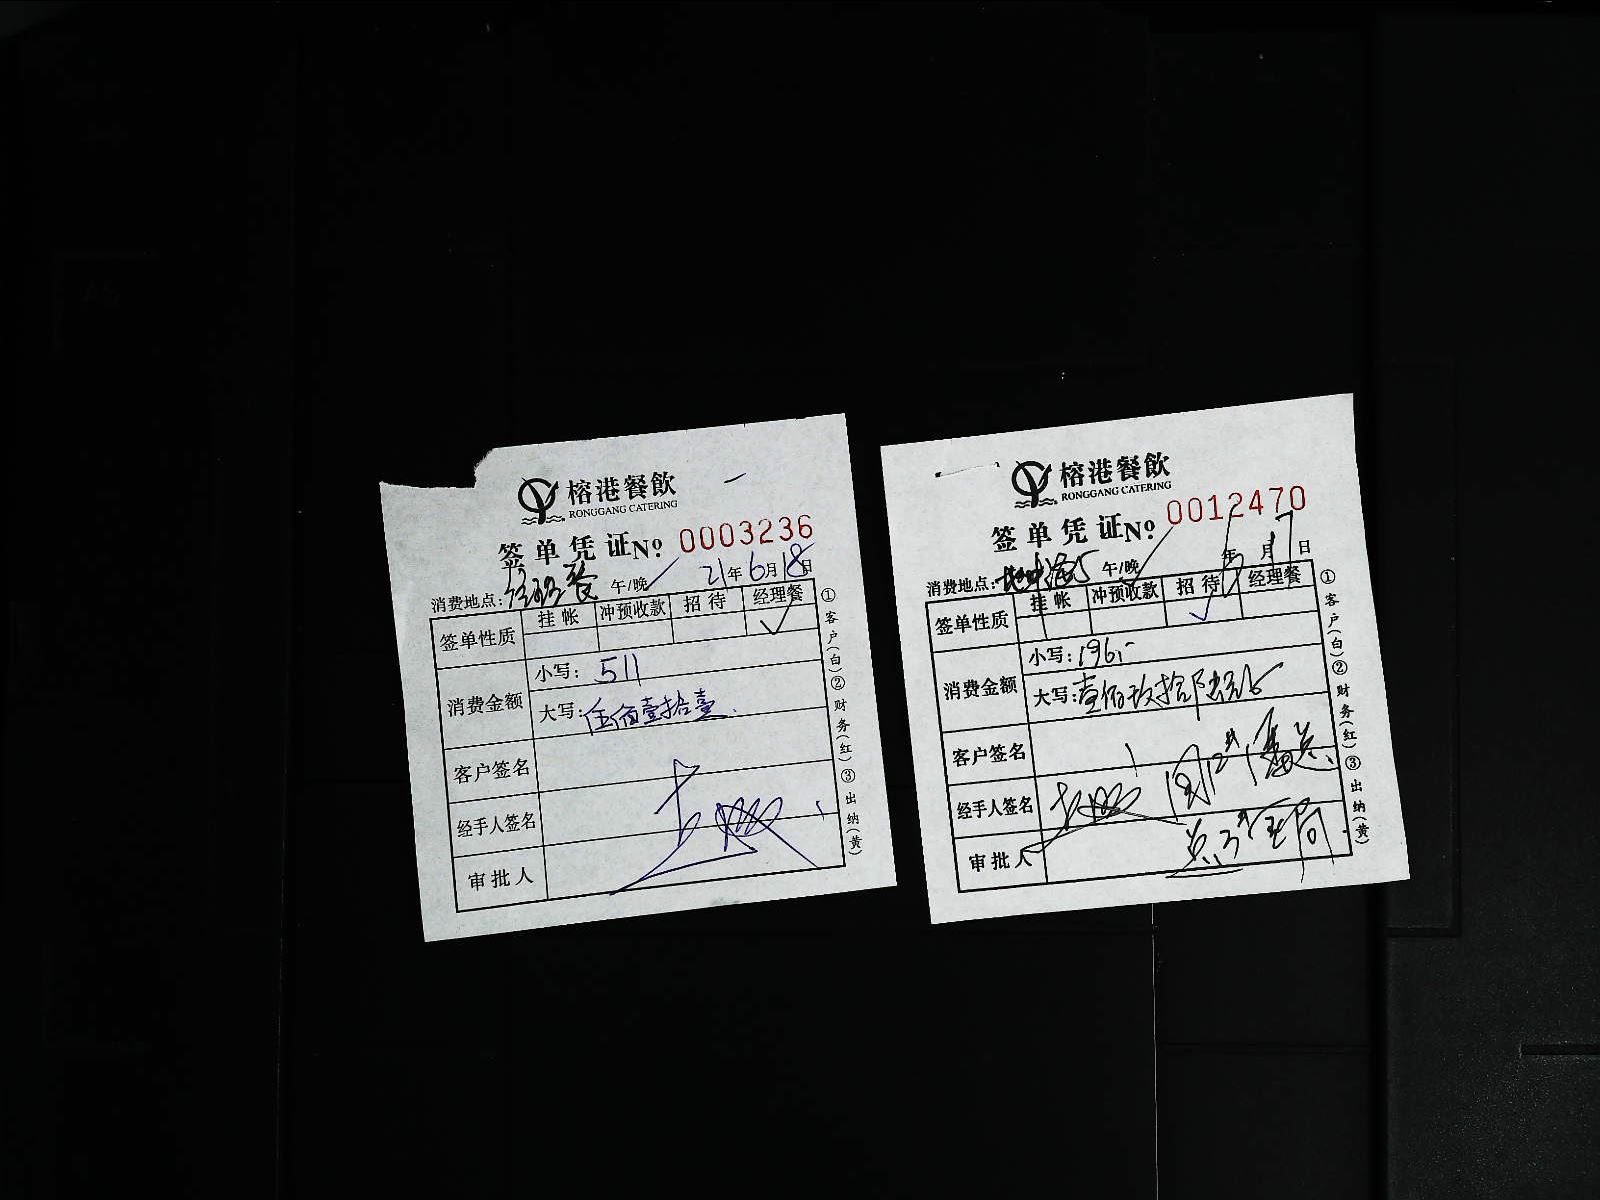 榕港餐飲
RONGGANG CATERING
签单凭证 №. 0003236
消费地点: 经理餐 午/晚 21年6月18日
签单性质 挂帐 冲预收款 招待 经理餐
✓
消费金额 小写: 511
大写: 伍佰壹拾壹.
客户签名
经手人签名
审批人
①客户(白)②财务(红)③出纳(黄)
榕港餐飲
RONGGANG CATERING
签单凭证 №. 0012470
消费地点: 午/晚 年 月 日
签单性质 挂帐 冲预收款 招待 经理餐
✓
消费金额 小写: 196.-
大写: 壹佰玖拾陆元
客户签名
经手人签名
审批人
①客户(白)②财务(红)③出纳(黄)